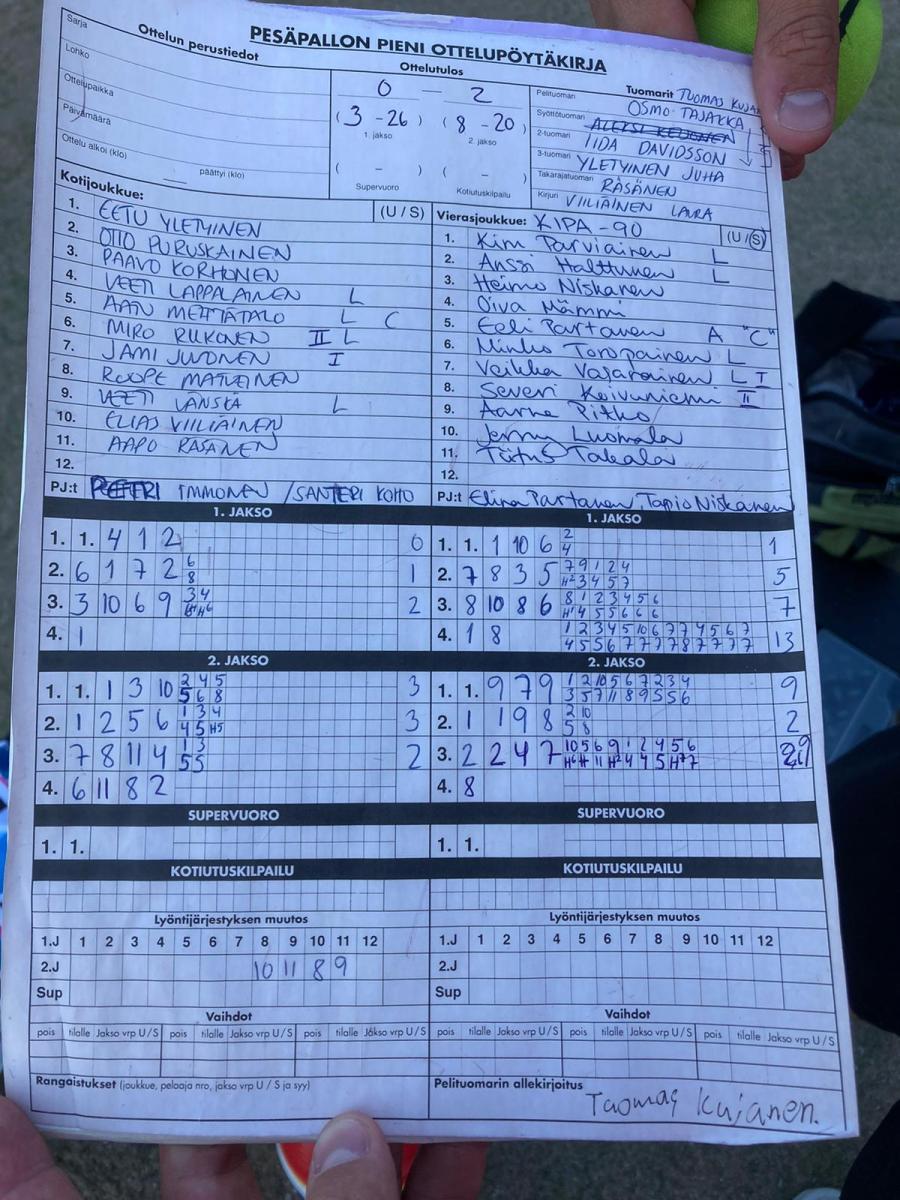 PESÄPALLON PIENI OTTELUPÖYTÄKIRJA
Sarja
Ottelun perustiedot
Lohko
Ottelupaikka
Päivämäärä
Ottelu alkoi (klo) päättyi (klo)
Ottelutulos
0 — 2
(3 - 26) (8 - 20)
1. jakso 2. jakso
( - ) ( - )
Supervuoro Kotiutuskilpailu
Tuomarit
Pelituomari TUOMAS
Syöttötuomari OSMO TAJAKKA
2-tuomari IIDA DAVIDSSON
3-tuomari YLETYINEN JUHA
Takarajatuomari RÄSÄNEN
Kirjuri VIILIÄINEN LAURA
Kotijoukkue: (U / S)
1. EETU YLETYINEN
2. OTTO PURUSKAINEN
3. PAAVO KORHONEN
4. VEETI LAPPALAINEN L
5. AATU METTÄTALO L C
6. MIRO RIIKONEN II L
7. JAMI JUNONEN I
8. ROOPE MATILAINEN
9. VEETI VÄNSKÄ L
10. ELIAS VIILIÄINEN
11. AAPO RÄSÄNEN
12.
PJ:t PETRI IMMONEN / SANTERI KOHO
Vierasjoukkue: KIPA -90 (U / S)
1. Kim Parviainen L
2. Anssi Halttunen L
3. Heimo Niskanen
4. Oiva Mämmi
5. Eeli Partanen A "C"
6. Minko Toropainen L
7. Veikka Vasarainen L I
8. Severi Koivuniemi II
9. Aarne Pitko
10. Jenny Luomala
11. Titus Takala
12.
PJ:t Elina Partanen, Tapio Niskanen
1. JAKSO
1. 1. 4 1 2 0
2. 6 1 7 2 6 1
8
3. 3 10 6 9 3 4 2
4. 1
1. JAKSO
1. 1. 1 10 6 2 1
4
2. 7 8 3 5 7 9 1 2 4 5
H2 3 4 5 7
3. 8 10 8 6 8 1 2 3 4 5 6 7
H1 4 5 5 6 6 6
4. 1 8 1 2 3 4 5 10 6 7 7 4 5 6 7 13
4 5 5 6 7 7 7 7 8 7 7 7 7
2. JAKSO
1. 1. 1 3 10 2 4 5 3
5 6 8
2. 1 2 5 6 1 3 4 3
4 5 H5
3. 7 8 11 4 1 3 2
5 5
4. 6 11 8 2
2. JAKSO
1. 1. 9 7 9 1 2 10 5 6 7 2 3 4 9
3 5 7 11 8 9 5 5 6
2. 1 1 9 8 2 10 2
5 8
3. 2 2 4 7 10 5 6 9 1 2 4 5 6 9
4. 8
SUPERVUORO
1. 1.
SUPERVUORO
1. 1.
KOTIUTUSKILPAILU
KOTIUTUSKILPAILU
Lyöntijärjestyksen muutos
1.J 1 2 3 4 5 6 7 8 9 10 11 12
2.J 10 11 8 9
Sup
Lyöntijärjestyksen muutos
1.J 1 2 3 4 5 6 7 8 9 10 11 12
2.J
Sup
Vaihdot
pois tilalle Jakso vrp U / S pois tilalle Jakso vrp U / S pois tilalle Jakso vrp U / S
Vaihdot
pois tilalle Jakso vrp U / S pois tilalle Jakso vrp U / S pois tilalle Jakso vrp U / S
Rangaistukset (joukkue, pelaaja nro, jakso vrp U / S ja syy)
Pelituomarin allekirjoitus
Tuomas Kujanen.